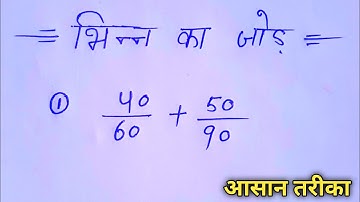 = भिन्न का जोड़ =
① 40/60 + 50/90
आसान तरीका